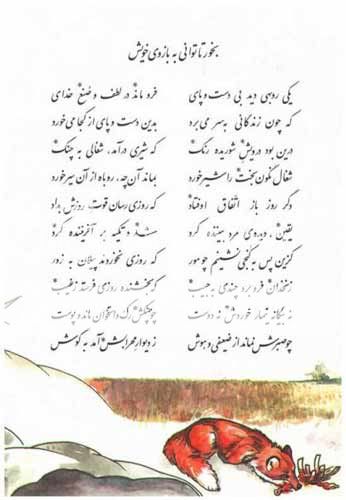 بخور تا توانی به بازوی خویش
یکی روبهی دید بی دست و پای فرو ماند در لطف و صنع خدای
که چون زندگانی به سر می برد بدین دست و پای از کجا می خورد
درین بود درویش شوریده رنگ که شیری درآمد، شغالی به چنگ
شغال نگون بخت را شیر خورد بماند آن چه، روباه از آن سیر خورد
دگر روز باز اتفاق اوفتاد که روزی رسان قوت روزش بداد
یقین، دیده‌ی مرد بیننده کرد شد و تکیه بر آفریننده کرد
کزین پس به کنجی نشینم چو مور که روزی نخوردند پیلان به زور
زنخدان فرو برد چندی به جیب که بخشنده روزی فرستد ز غیب
نه بیگانه تیمار خوردش نه دوست چو چنگش رگ و استخوان ماند و پوست
چو صبرش نماند از ضعیفی و هوش ز دیوار محرابش آمد به گوش